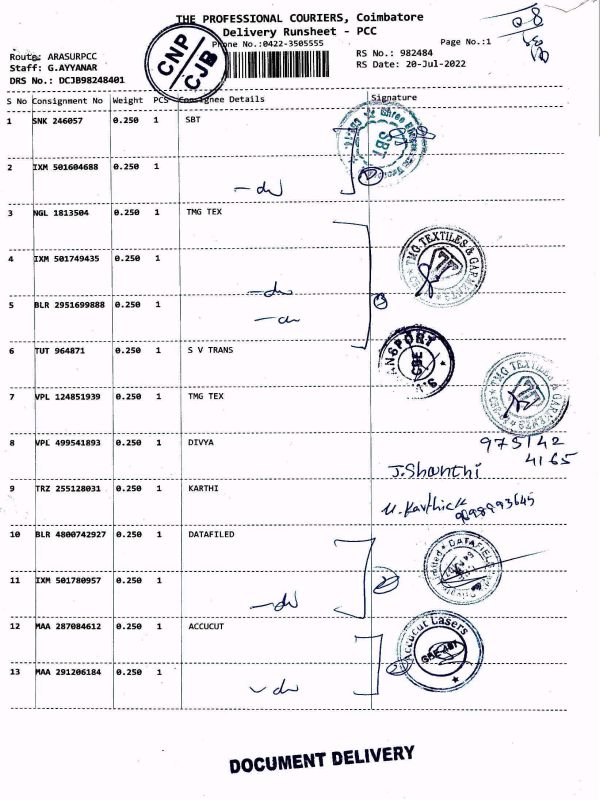 THE PROFESSIONAL COURIERS, Coimbatore
Delivery Runsheet - PCC
Phone No.:0422-3505555
Page No.:1
Route: ARASURPCC
RS No.: 982484
Staff: G.AYYANAR
RS Date: 20-Jul-2022
DRS No.: DCJB98248401
CNP
CJB
S No Consignment No Weight PCS Consignee Details Signature
1 SNK 246057 0.250 1 SBT
SBT
2 IXM 501604688 0.250 1
3 NGL 1813504 0.250 1 TMG TEX
TMG TEXTILES & GARMENTS
4 IXM 501749435 0.250 1
5 BLR 2951699888 0.250 1
6 TUT 964871 0.250 1 S V TRANS
CBE
7 VPL 124851939 0.250 1 TMG TEX
TMG TEXTILES & GARMENTS
8 VPL 499541893 0.250 1 DIVYA
975142
4165
J.Shanthi
9 TRZ 255128031 0.250 1 KARTHI
M.Karthick
10 BLR 4800742927 0.250 1 DATAFILED
11 IXM 501780957 0.250 1
12 MAA 287084612 0.250 1 ACCUCUT
Accucut Lasers
13 MAA 291206184 0.250 1
DOCUMENT DELIVERY